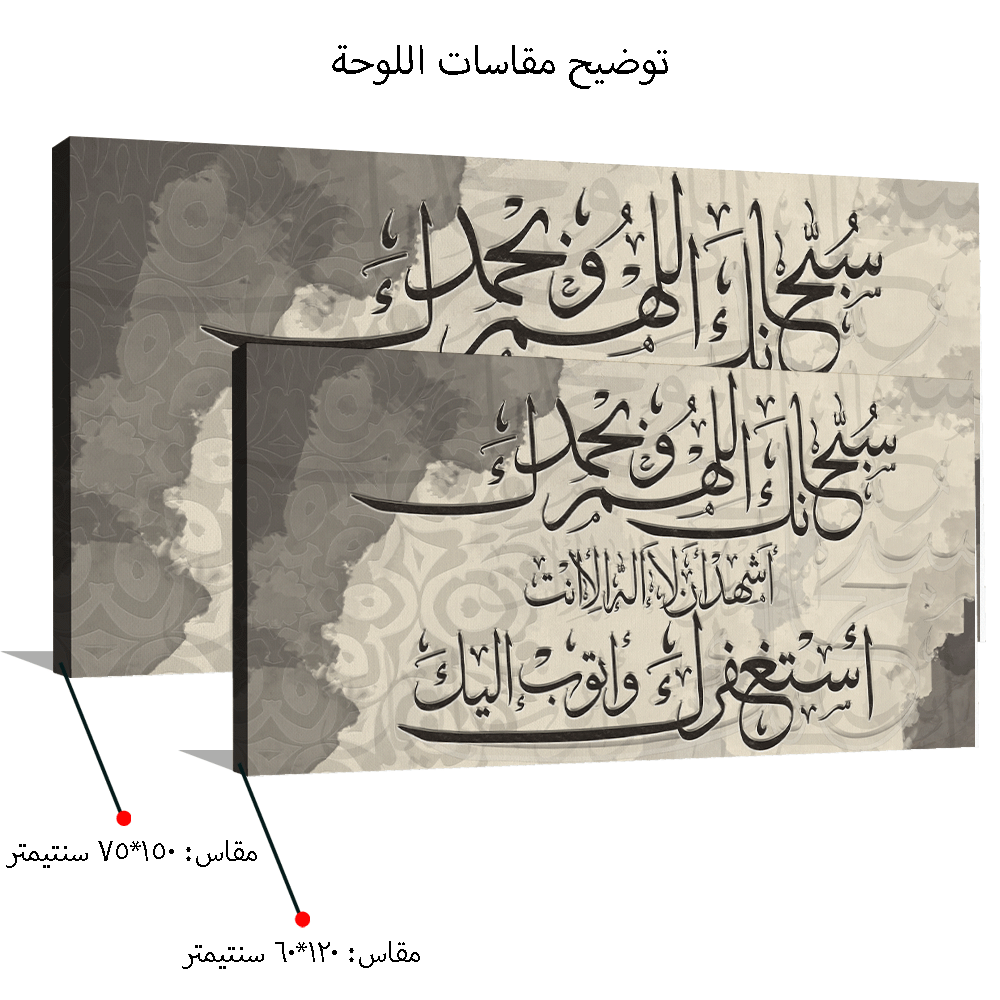 توضيح مقاسات اللوحة
سبحانك اللهم وبحمدك
سبحانك اللهم وبحمدك
أشهد أن لا إله إلا أنت
أستغفرك وأتوب إليك
مقاس: ١٥٠*٧٥ سنتيمتر
مقاس: ١٢٠*٦٠ سنتيمتر